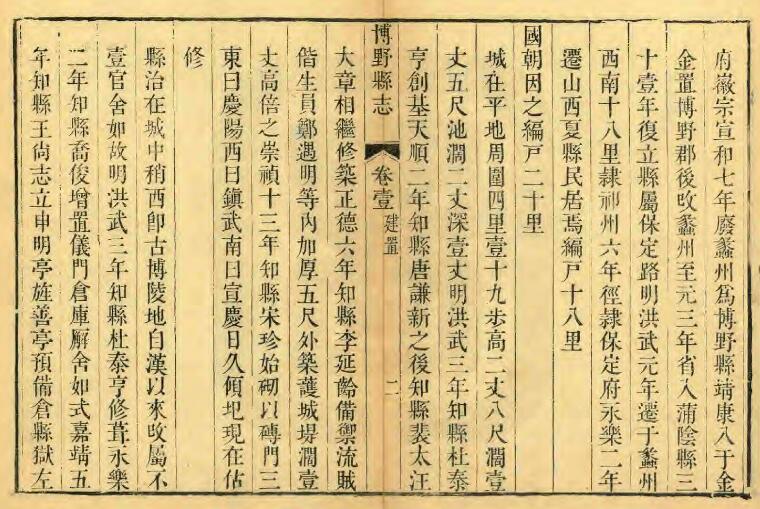 府徽宗宣和七年廢蠡州爲博野縣靖康入于金
金置博野郡後攺蠡州至元三年省入蒲陰縣三
十壹年復立縣屬保定路明洪武元年遷于蠡州
西南十八里隷祁州六年徑隷保定府永樂二年
遷山西夏縣民居焉編戸十八里
國朝因之編戸二十里
城在平地周圍四里壹十九步高二丈八尺濶壹
丈五尺池濶二丈深壹丈明洪武三年知縣杜泰
亨創基天順二年知縣唐謙新之後知縣裴太汪
博野縣志
卷壹
建置
二
大章相繼修築正德六年知縣李延齡備禦流賊
偕生員鄭遇明等內加厚五尺外築護城堤濶壹
丈高倍之崇禎十三年知縣宋珍始砌以磚門三
東曰慶陽西曰鎭武南曰宣慶日久傾圯現在估
修
縣治在城中稍西卽古博陵地自漢以來攺屬不
壹官舍如故明洪武三年知縣杜泰亨修葺永樂
二年知縣喬俊增置儀門倉庫廨舍如式嘉靖五
年知縣王尙志立申明亭旌善亭預備倉縣獄左